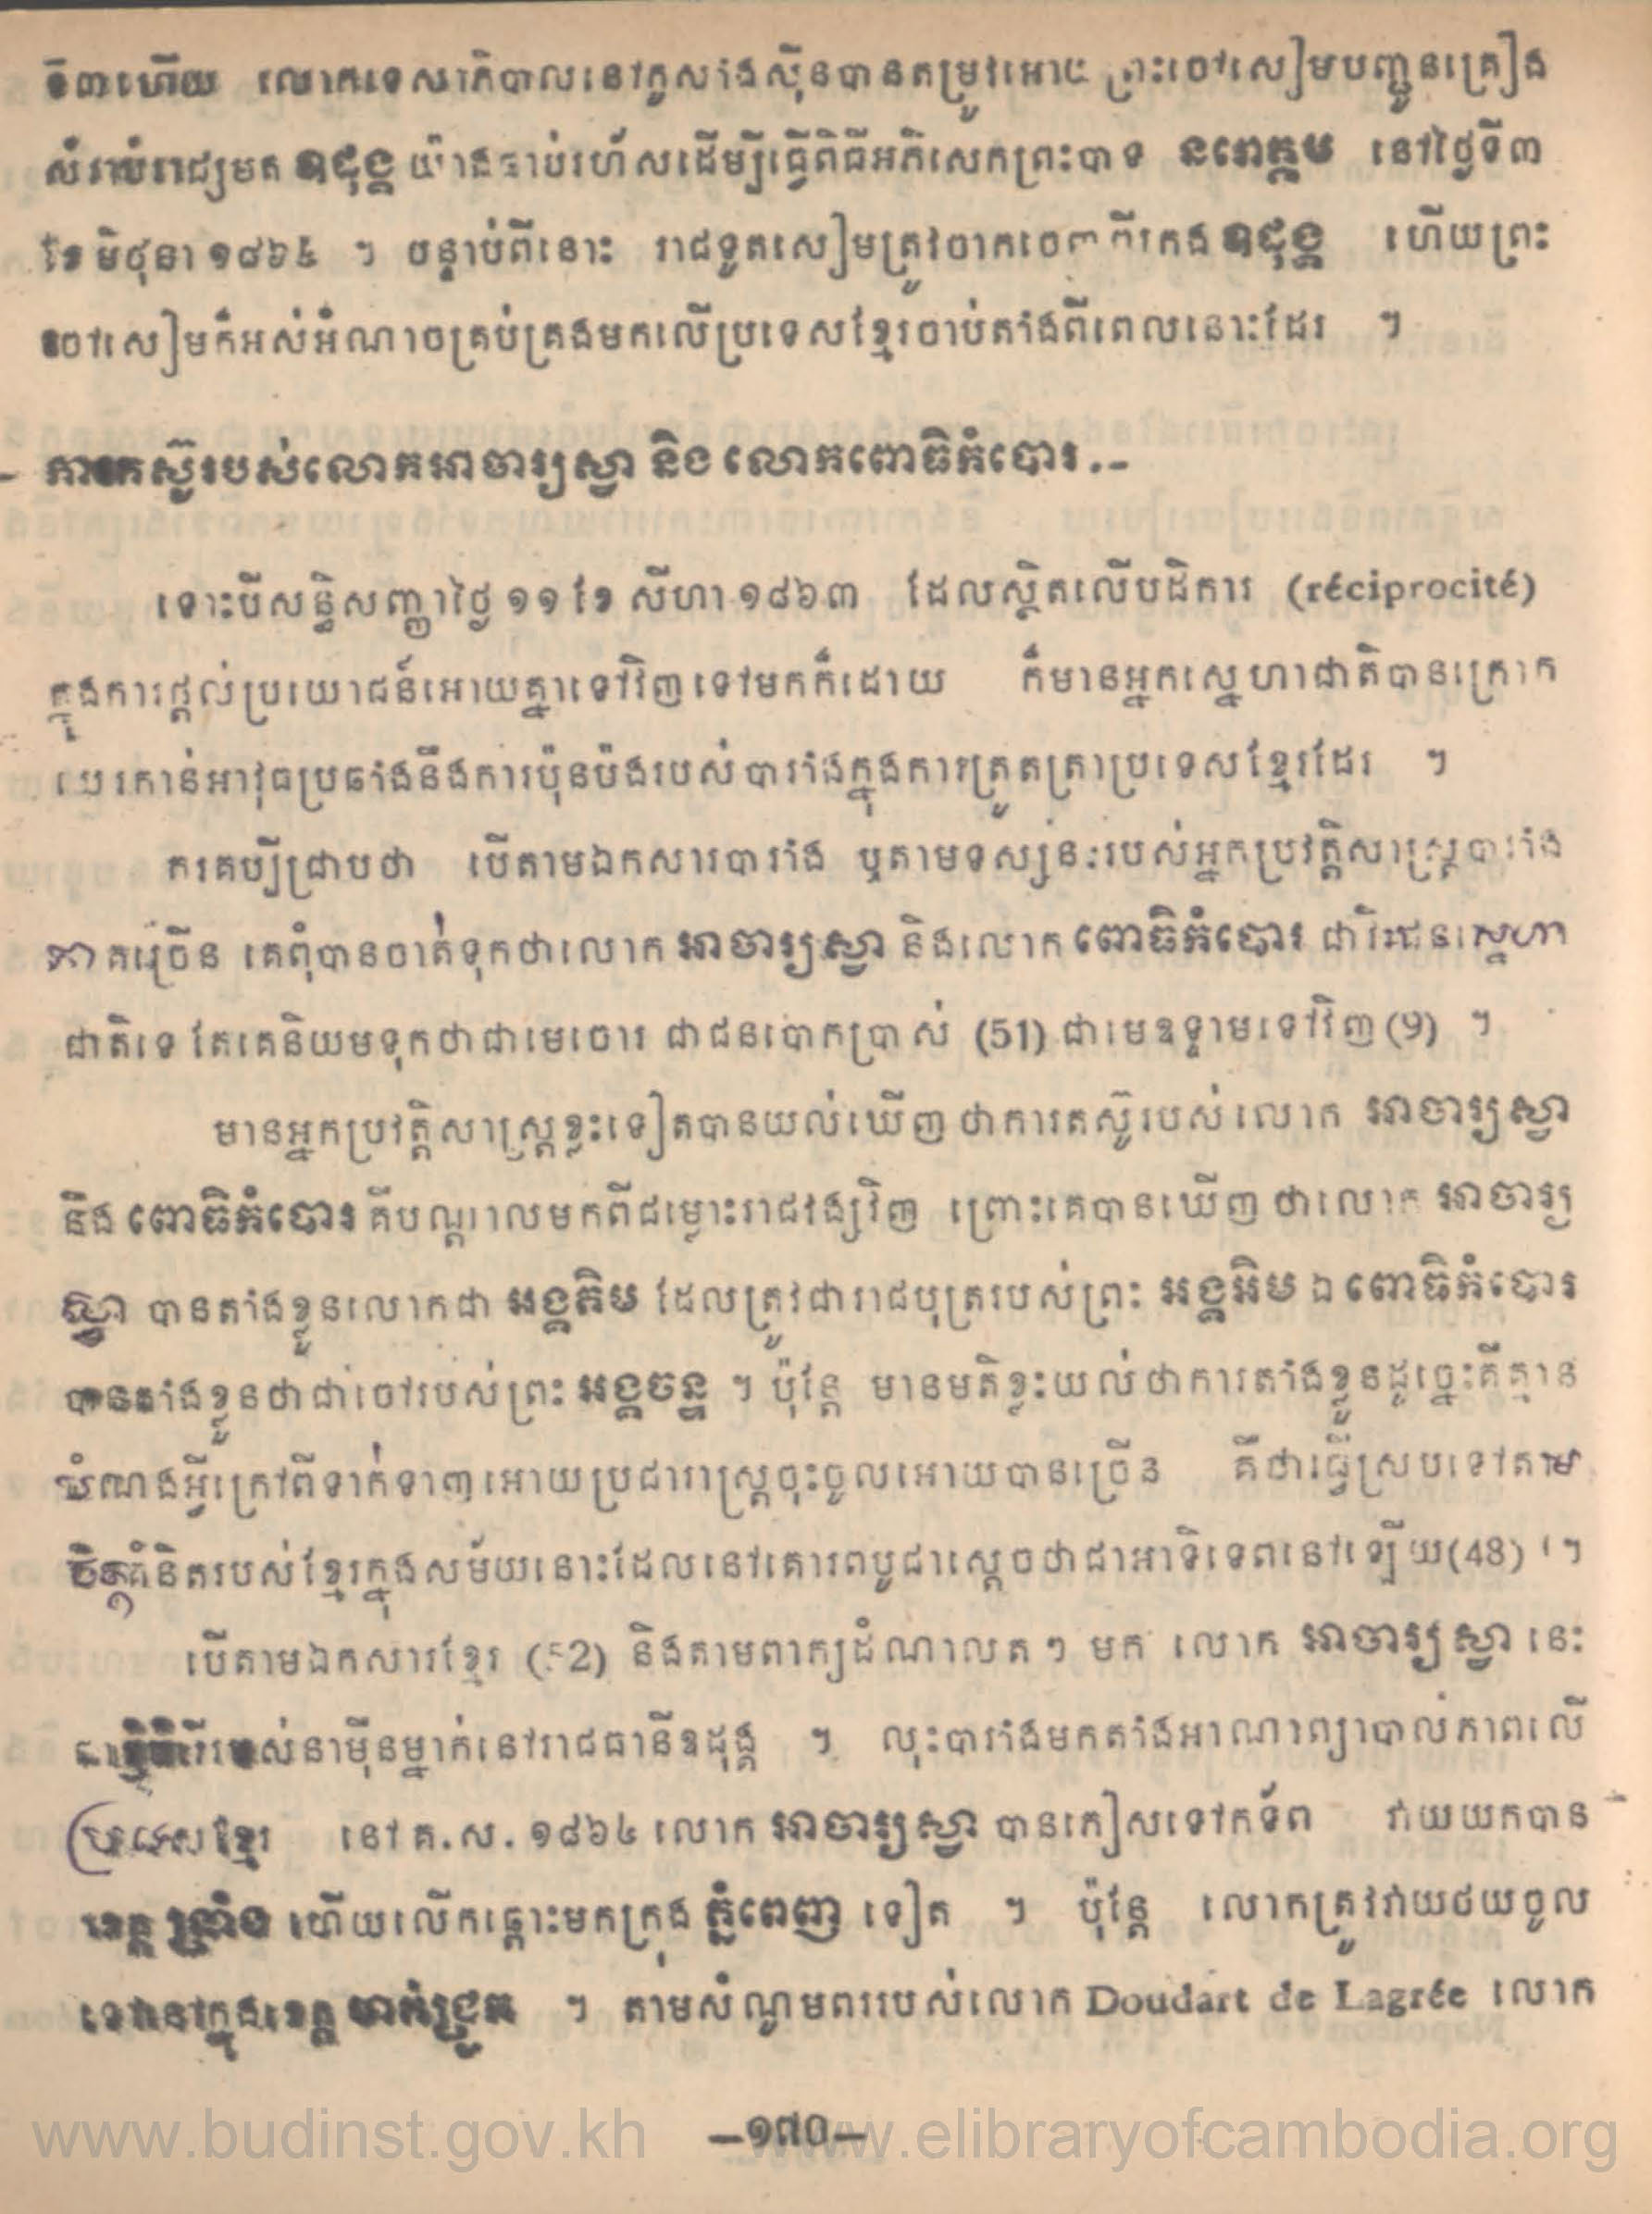 ទី៣ហើយ លោកទេសាភិបាលនៅកូសាំងស៊ីនបានតម្រូវអោយ ព្រះចៅសៀមបញ្ជូនគ្រឿង
សំរាប់រាជ្យមក ឧដុង្គ យ៉ាងឆាប់រហ័សដើម្បីធ្វើពិធីអភិសេកព្រះបាទ នរោត្តម នៅថ្ងៃទី៣
ខែ មិថុនា ១៨៦៤ ។ បន្ទាប់ពីនោះ រាជទូតសៀមត្រូវចាកចេញពីរកង ឧដុង្គ ហើយព្រះ
ចៅសៀមក៏អស់អំណាចគ្រប់គ្រងមកលើប្រទេសខ្មែរចាប់តាំងពីពេលនោះដែរ ។
- ការតស៊ូរបស់លោកអាចារ្យស្វា និង លោកពោធិកំបោរ .-
ទោះបីសន្ធិសញ្ញាថ្ងៃ ១១ ខែ សីហា ១៨៦៣ ដែលស្ថិតលើបដិការ (réciprocité)
ក្នុងការផ្តល់ប្រយោជន៍អោយគ្នាទៅវិញទៅមកក៏ដោយ ក៏មានអ្នកស្នេហាជាតិបានក្រោក
យេរកាន់អាវុធប្រឆាំងនឹងការប៉ុនប៉ងរបស់បារាំងក្នុងការត្រួតត្រាប្រទេសខ្មែរដែរ ។
គរគប្បីជ្រាបថា បើតាមឯកសារបារាំង ឬតាមទស្សនៈរបស់អ្នកប្រវត្តិសាស្ត្របារាំង
ភាគច្រើន គេពុំបានចាត់ទុកថាលោក អាចារ្យស្វា និងលោក ពោធិកំបោរ ជាវីរជនស្នេហា
ជាតិទេ តែគេនិយមទុកថាជាមេចោរ ជាជនបោកប្រាស់ (51) ជាមេឧទ្ទាមទៅវិញ (9) ។
មានអ្នកប្រវត្តិសាស្ត្រខ្លះទៀតបានយល់ឃើញ ថាការតស៊ូរបស់លោក អាចារ្យស្វា
និង ពោធិកំបោរ គឺបណ្តាលមកពីជម្លោះរាជវង្សវិញ ព្រោះគេបានឃើញ ថាលោក អាចារ្យ
ស្វា បានតាំងខ្លួនលោកជា អង្គភិម ដែលត្រូវជារាជបុត្ររបស់ព្រះ អង្គអិម ឯ ពោធិកំបោរ
បានតាំងខ្លួនថាជាចៅរបស់ព្រះ អង្គចន្ទ ។ ប៉ុន្តែ មានមតិខ្លះយល់ថាការតាំងខ្លួនដូច្នេះគឺគ្មាន
បំណងអ្វីក្រៅពីទាក់ទាញអោយប្រជារាស្ត្រចុះចូលអោយបានច្រើន គឺថាធ្វើស្របទៅតាម
ចិត្តគំនិតរបស់ខ្មែរក្នុងសម័យនោះដែលនៅគោរពបូជាស្តេចថាជាអាទិទេពនៅឡើយ (48) ។
បើតាមឯកសារខ្មែរ (52) និងតាមពាក្យដំណាលតៗ មក លោក អាចារ្យស្វា នេះ
របស់នាម៉ឺនម្នាក់នៅរាជធានីឧដុង្គ ។ លុះបារាំងមកតាំងអាណាព្យាបាលភាពលើ
ប្រទេសខ្មែរ នៅ គ.ស. ១៨៦៤ លោក អាចារ្យស្វា បានកៀសទៅកទ័ព វាយយកបាន
ខេត្ត ហើយលើកឆ្ពោះមកក្រុង ភ្នំពេញ ទៀត ។ ប៉ុន្តែ លោកត្រូវវាយថយចូល
ទៅនៅក្នុងខេត្ត មាត់ជ្រូក ។ តាមសំណូមពររបស់លោក Doudart de Lagrée លោក
—១៧០—
www.budinst.gov.kh
www.elibraryofcambodia.org